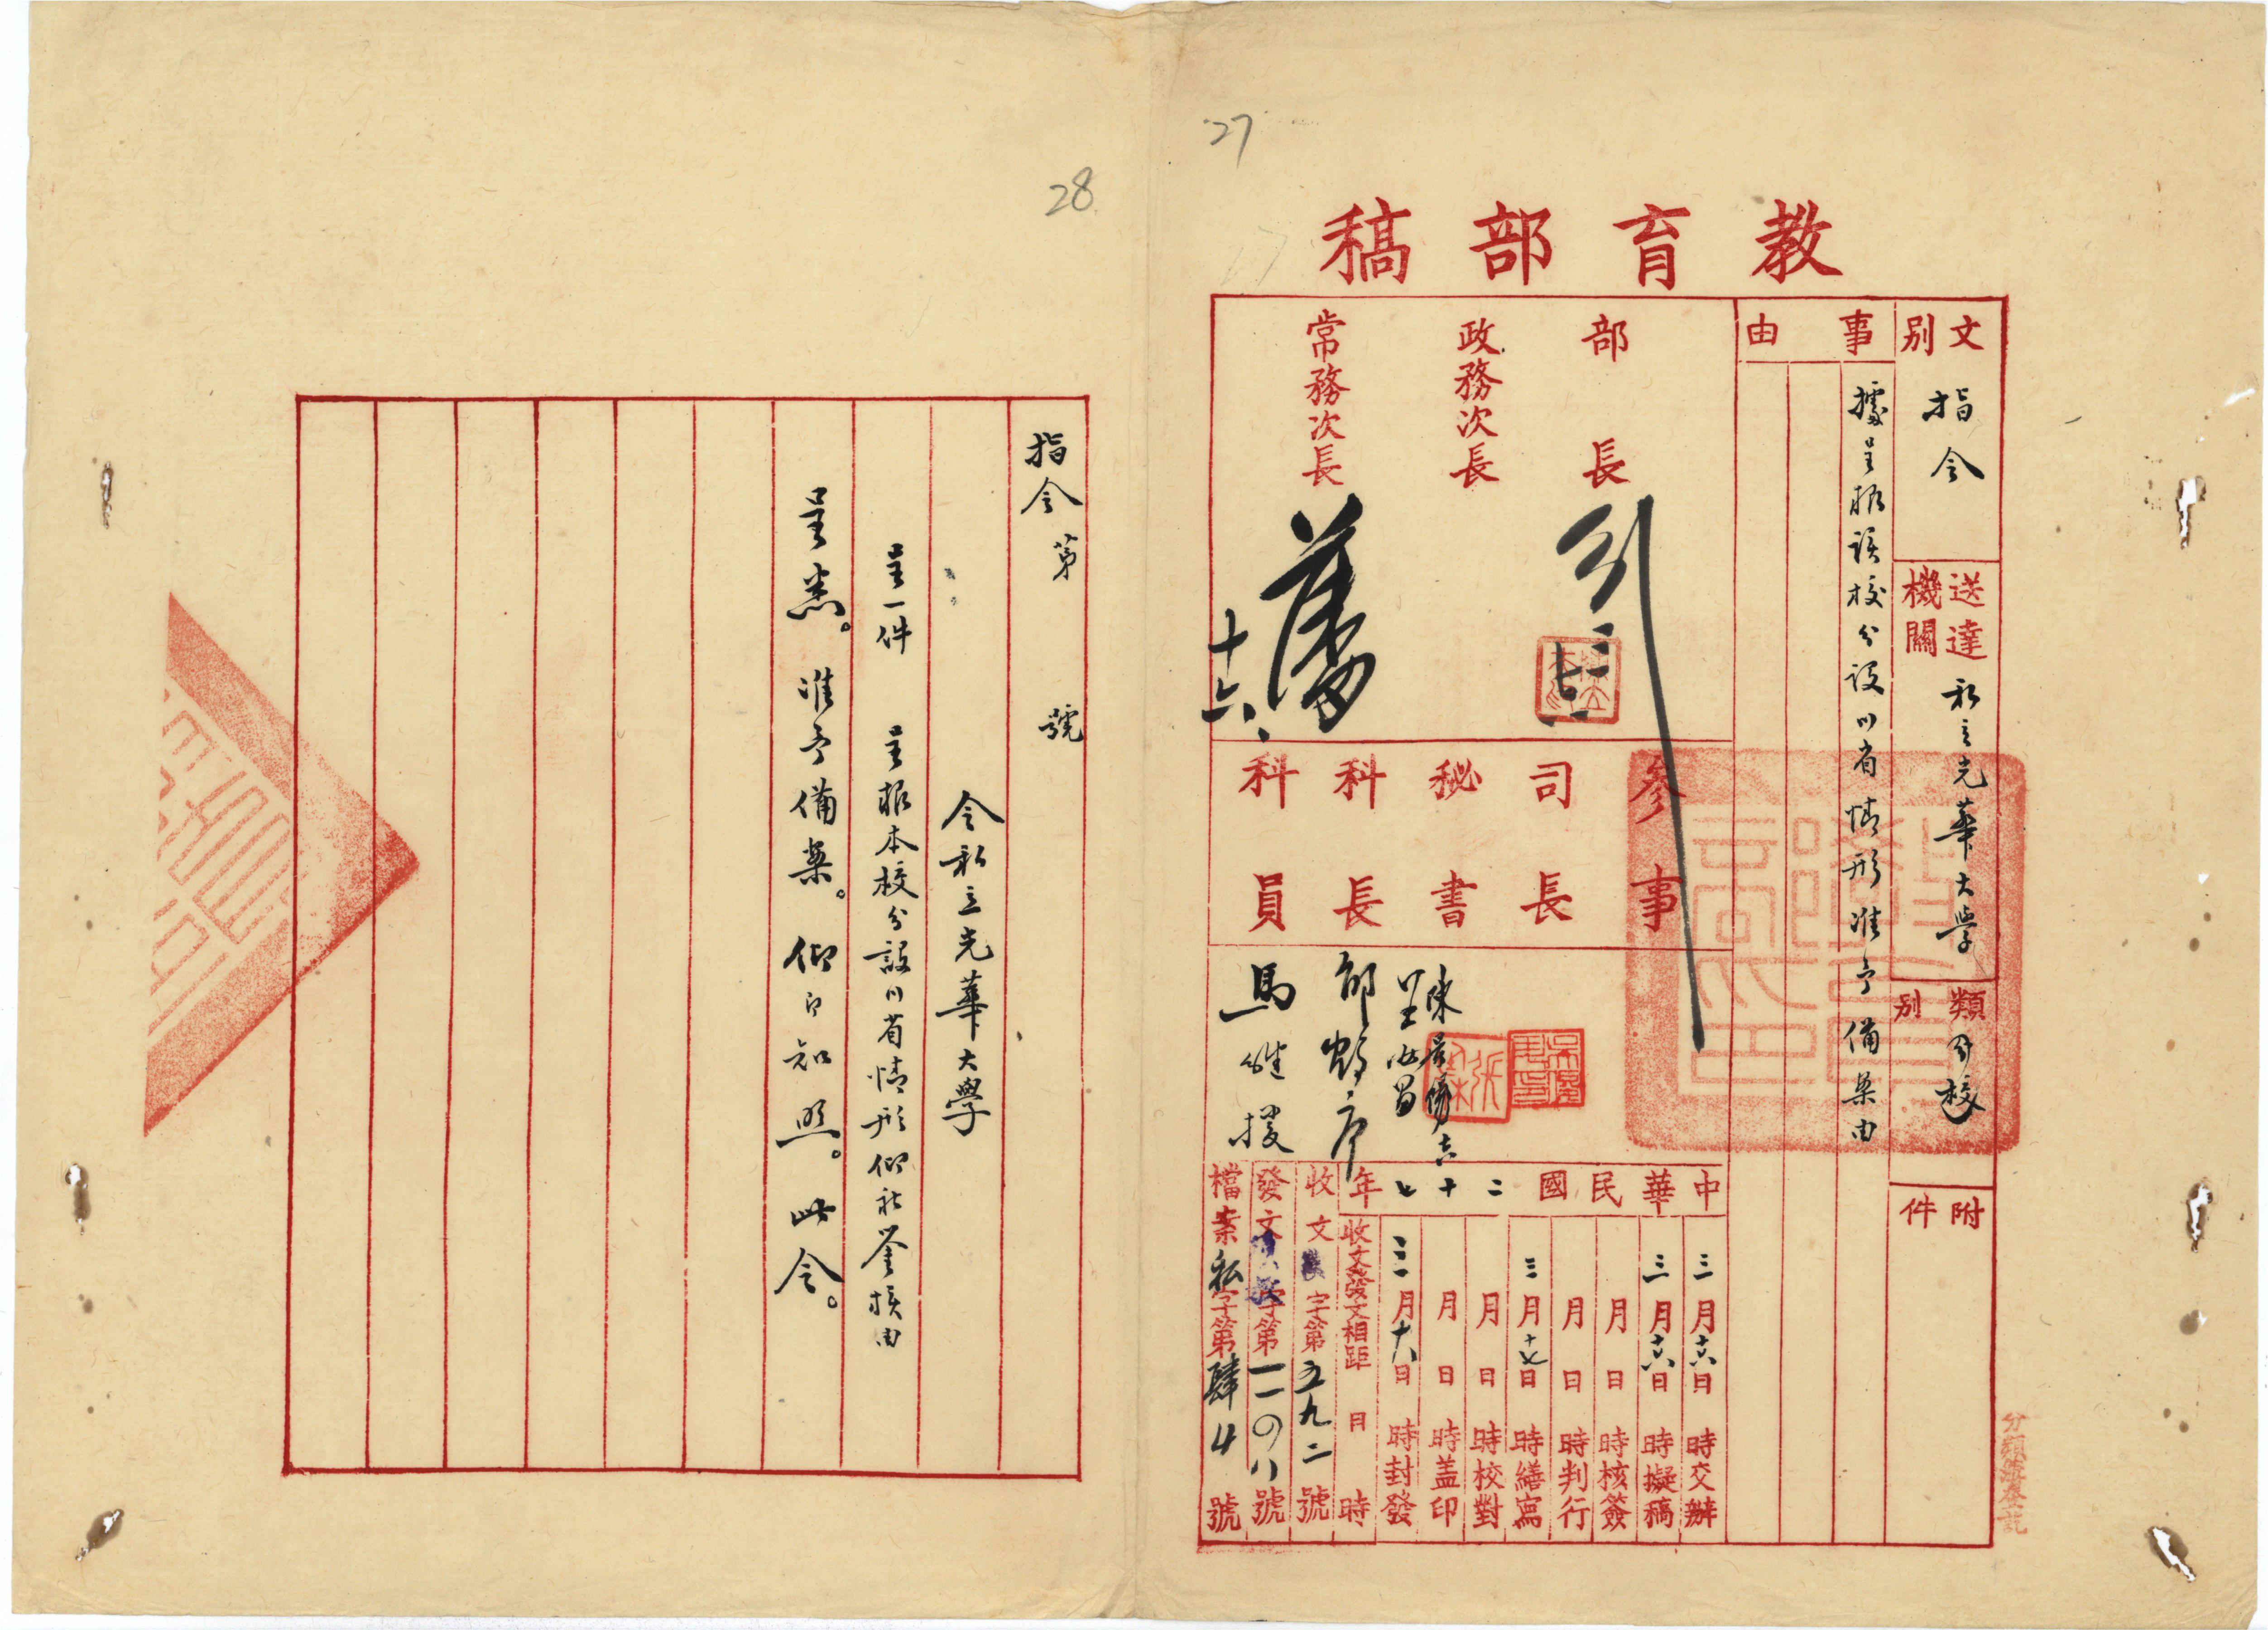 27
教育部稿
文別 指令
送達機關 私立光華大學
類別 分校
附件
事由 據呈報該校分設川省情形准予備案由
部長
政務次長
常務次長
十六、
參事
司長
秘書
科長
科員
馬繼援
中華民國二十七年
三月十六日時交辦
三月十六日時擬稿
月日時核簽
月日時判行
三月十七日時繕寫
月日時校對
月日時蓋印
三月十八日時封發
收文發文相距 日 時
收文 字第五九二號
發文 字第一一〇八號
檔案私字第肆4號
28
指令 第 號
令私立光華大學
呈一件 呈報本校分設川省情形仰祈鑒核由
呈悉。准予備案。仰即知照。此令。